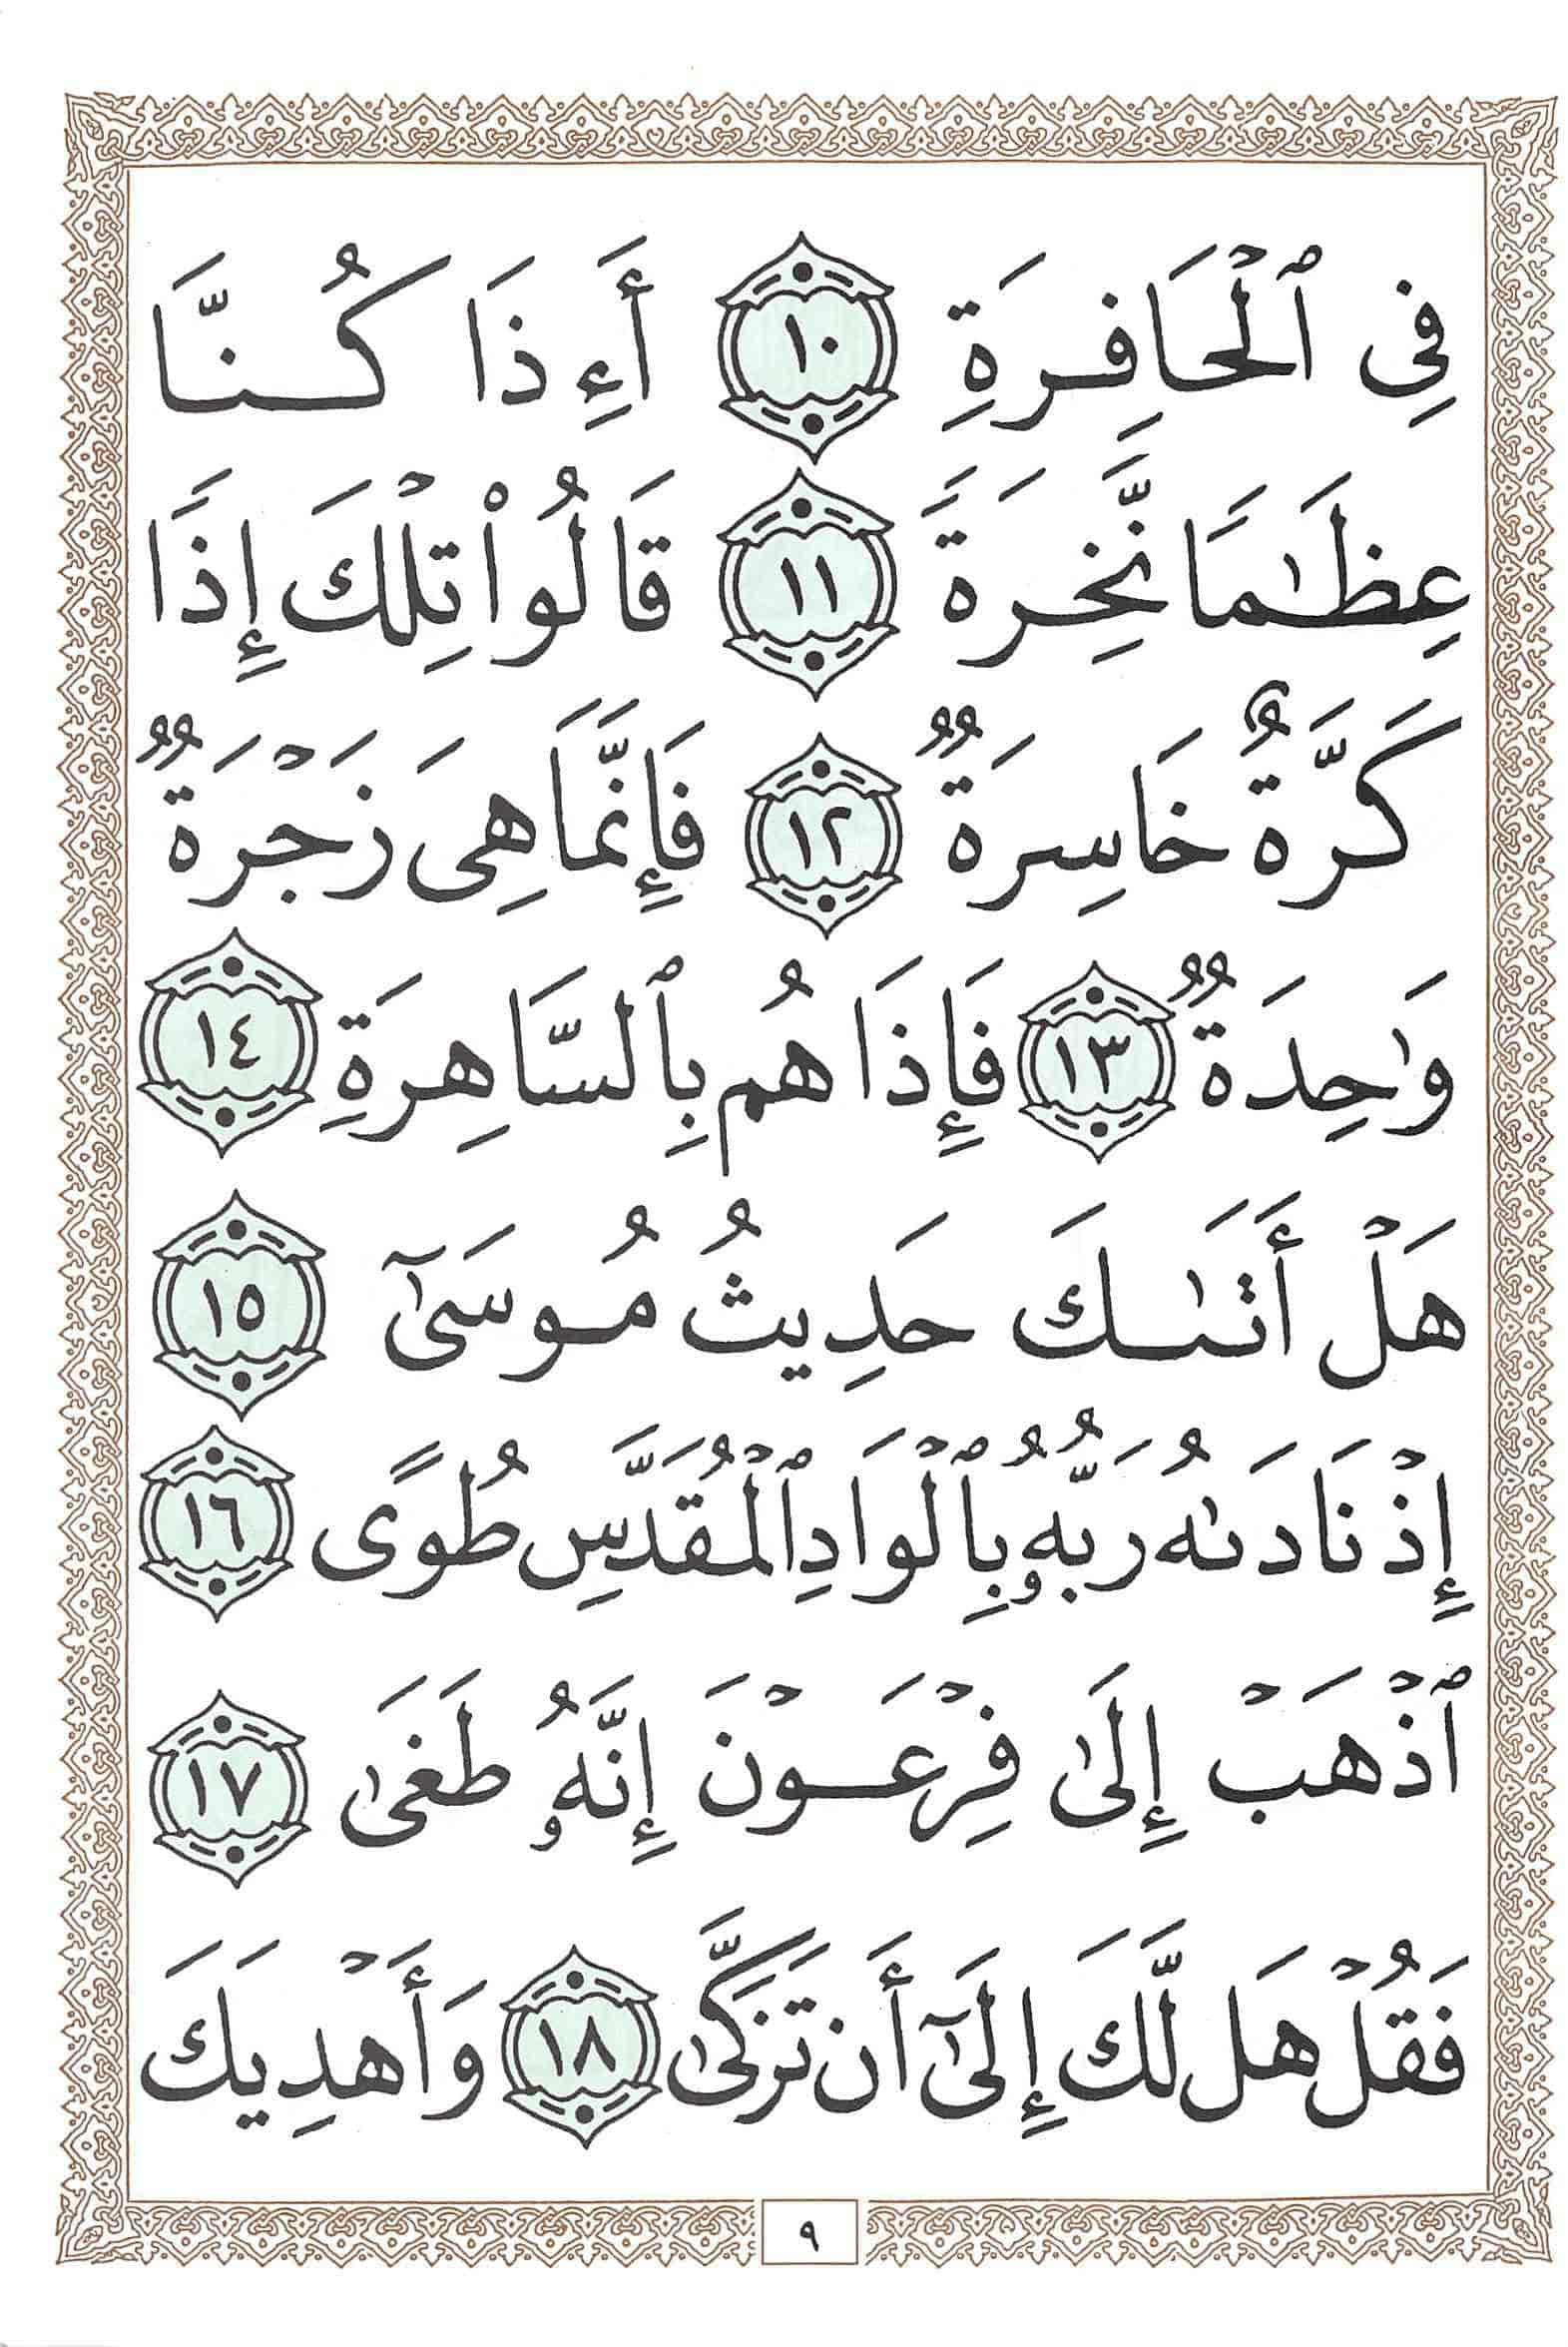 فِى ٱلْحَافِرَةِ ١٠ أَءِذَا كُنَّا
عِظَـٰمًا نَّخِرَةً ١١ قَالُوا۟ تِلْكَ إِذًا
كَرَّةٌ خَاسِرَةٌ ١٢ فَإِنَّمَا هِىَ زَجْرَةٌ
وَٰحِدَةٌ ١٣ فَإِذَا هُم بِٱلسَّاهِرَةِ ١٤
هَلْ أَتَىٰكَ حَدِيثُ مُوسَىٰٓ ١٥
إِذْ نَادَىٰهُ رَبُّهُۥ بِٱلْوَادِ ٱلْمُقَدَّسِ طُوًى ١٦
ٱذْهَبْ إِلَىٰ فِرْعَوْنَ إِنَّهُۥ طَغَىٰ ١٧
فَقُلْ هَل لَّكَ إِلَىٰٓ أَن تَزَكَّىٰ ١٨ وَأَهْدِيَكَ
٩